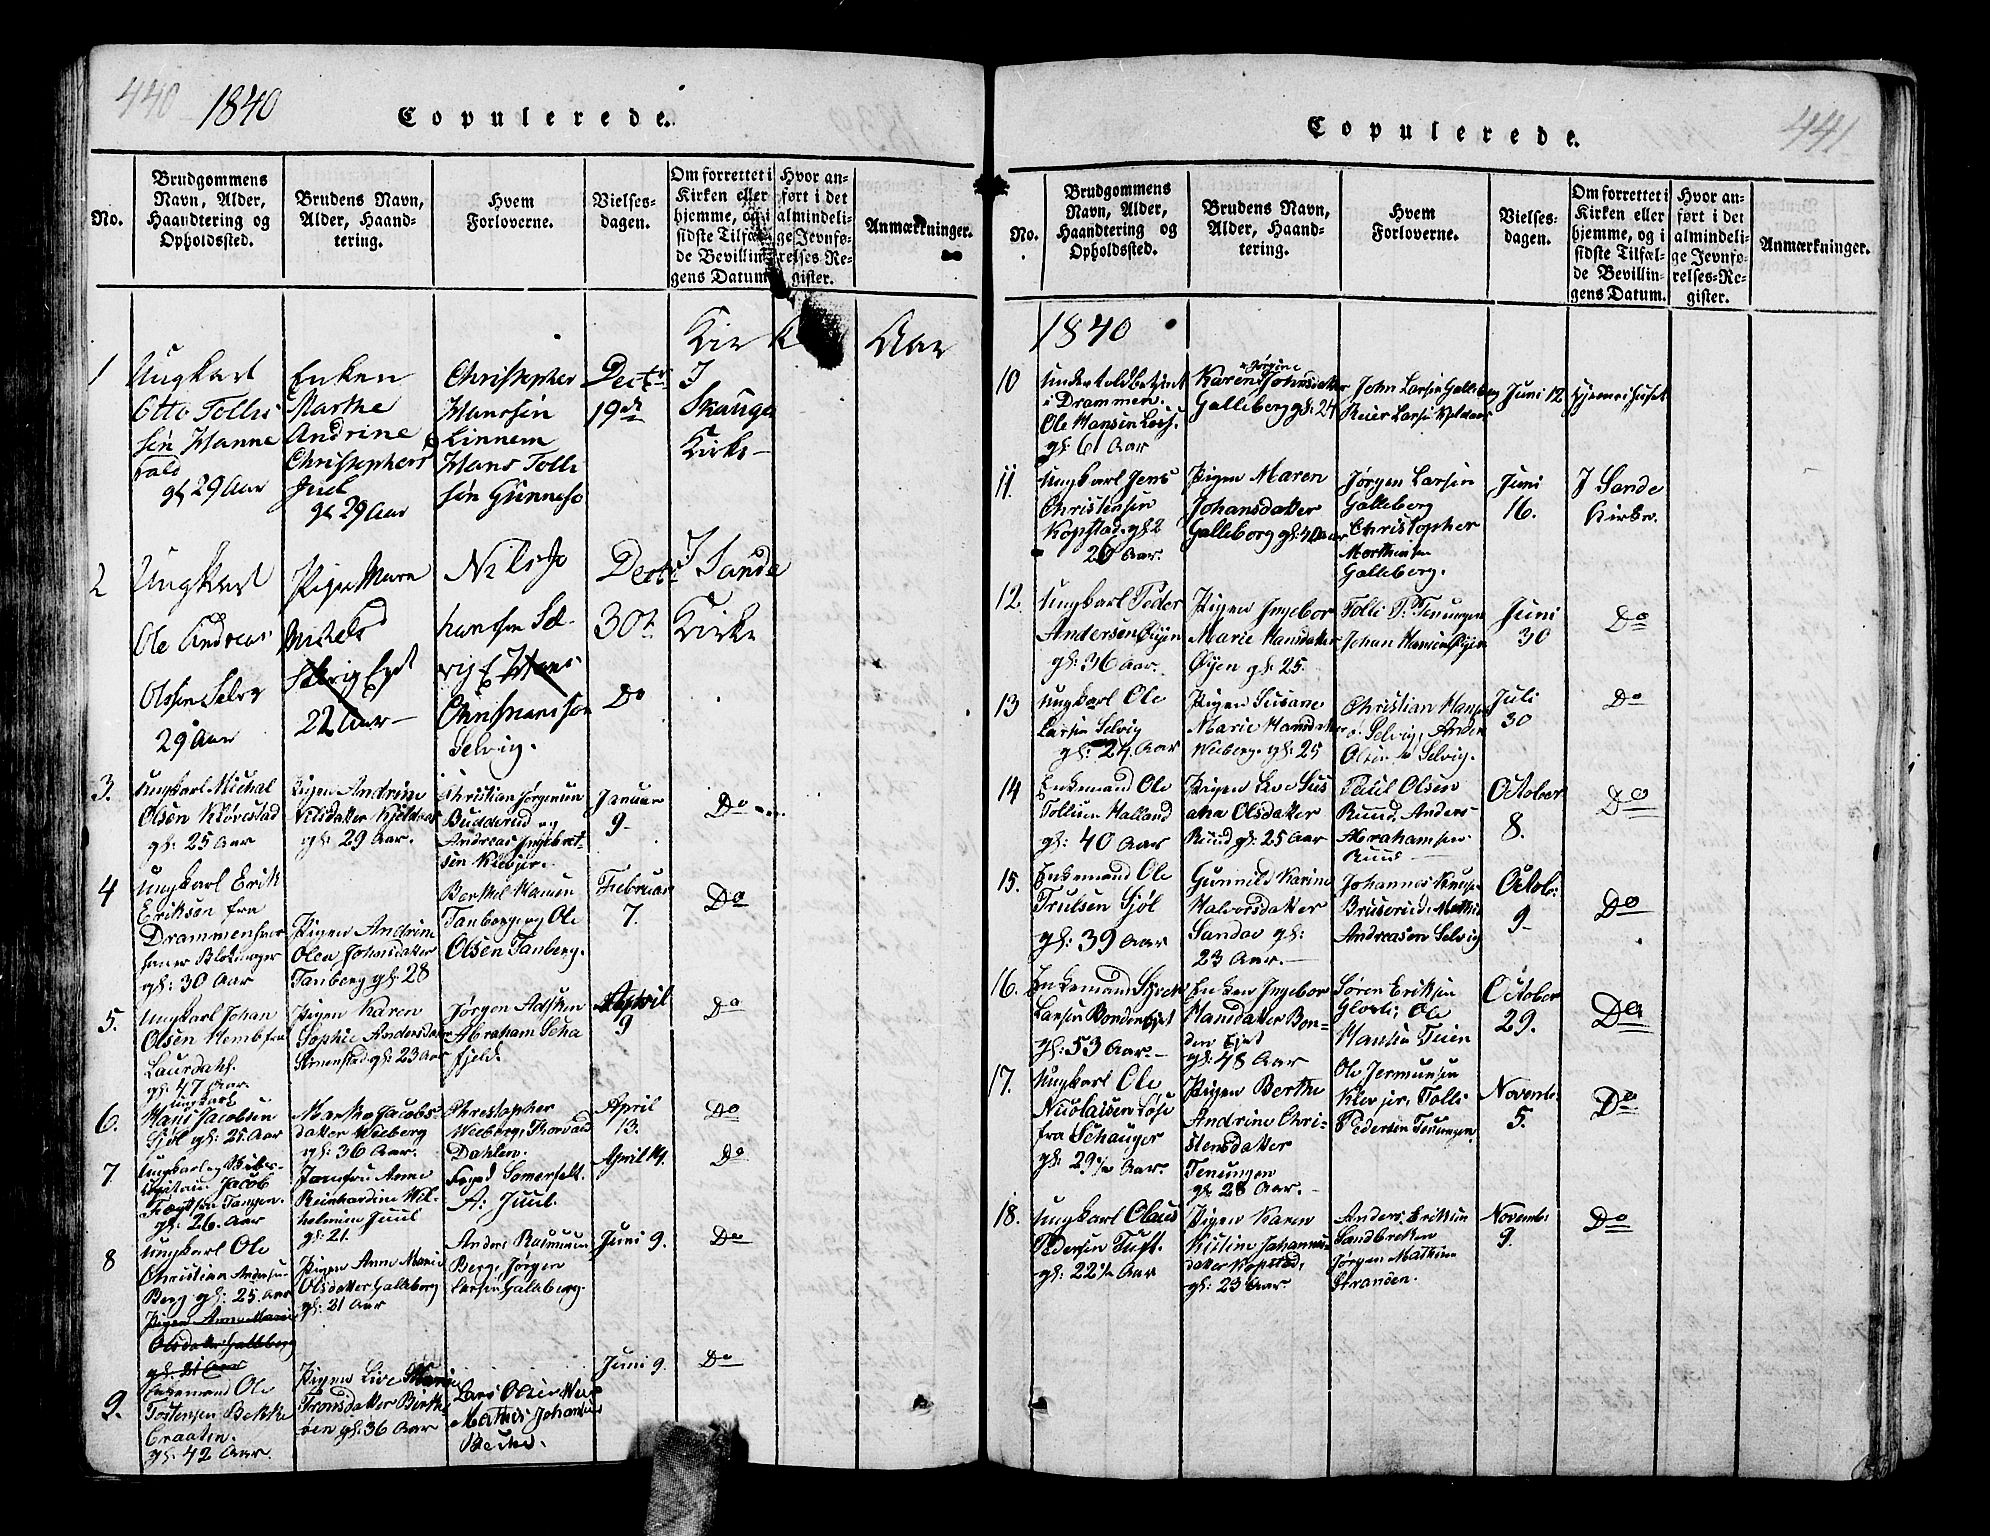 440
1840
Copulerede.
No.
Brudgommens
Navn, Alder,
Haandtering og
Opholdssted.
Brudens Navn,
Alder, Haand-
tering.
Hvem
Forloverne.
Vielses-
dagen.
Om forrettet i
Kirken eller
hjemme, og i
sidste Tilfæl-
de Bevillin-
gens Datum.
Hvor an-
ført i det
almindeli-
ge Jevnfø-
relses-Re-
gister.
Anmærkninger.
Aar
1
Ungkarl
Otto
29 Aar
Enken
Marthe
Andrine
Christophers
Juel
29 Aar
Christopher
Hanssøn
Linnem
Hans Tolli
søn
Decbr
19de
I
Skauger
Kirke
2
Ungkarl
Ole Andreas
Olssøn Selvig
29 Aar
Pigen Maren
Selvig
22 Aar
Nils Jo
hanssøn Sel
vig & Hans
Christianssøn
Selvig.
Decbr
30te
Do
I Sande
Kirke
3.
Ungkarl Michal
Olsen Kløvestad
gl: 25 Aar
Pigen Andrine
Nilsdatter
gl: 29 Aar.
Christian Jørgensen
Budderud og
Andreas Ingebret-
sen
Januar
9
Do
4
Ungkarl Erik
Eriksen fra
Drammen
gl: 30 Aar
Pigen Andrine
Olea Johnsdatter
Tanberg gl: 28
Berthel Hansen
Tanberg og Ole
Olsen Tanberg.
Februar
7.
Do
5.
Ungkarl Johan
Olsen Hemb fra
Laurdahl.
gl: 47 Aar.
Pigen Karen
Sophie Andersdatter
gl: 23 Aar
Jørgen
Abraham Scha
fjeld.
April
9
Do
6.
Ungkarl
Hans Jacobsen
Sjøl gl: 25 Aar
Marthe Jacobs-
datter Weeberg
gl: 36 Aar.
Christopher
Weeberg, Thorvald
Dahlen.
April
13.
Do
7
Jacob
Tangen.
gl: 26 Aar
Jomfru Anne
Reinhardine Wil-
helmine Juul
gl: 21.
Foged Somerfelt.
A: Juul.
April 14.
Do
8
Ungkarl Ole
Christian Anders
Berg gl: 25 Aar
Pigen Anne Marie
Olsdatter Galleberg
gl: 21 Aar
Pigen Anne Marie
Olsdatter Galleberg
gl: 21 Aar
Anders Rasmusen
Berg, Jørgen
Larsen Galleberg.
Juni 9.
Do
9.
Enkemand Ole
Tostensen Bekke
Craatin.
gl: 42 Aar.
Pigen Live Marie
Tronsdatter Birke
øen gl: 36 Aar
Lars Olsen
Mathis Johansen
Juni 9.
Do
441
Copulerede.
No.
Brudgommens
Navn, Alder,
Haandtering og
Opholdssted.
Brudens Navn,
Alder, Haand-
tering.
Hvem
Forloverne.
Vielses-
dagen.
Om forrettet i
Kirken eller
hjemme, og i
sidste Tilfæl-
de Bevillin-
gens Datum.
Hvor an-
ført i det
almindeli-
ge Jevnfø-
relses-Re-
gister.
Anmærkninger.
1840
10
Undertoldbetjent
i Drammen.
Ole Hansen
gl: 61 Aar
Jørgine
Karen Johnsdatter
Galleberg gl: 24
John Larsen Galleberg
Reier Larsen
Juni 12
hjemme i huset
11.
Ungkarl Jens
Christensen
Kopstad gl:
26 Aar.
Pigen Maren
Johansdatter
Galleberg gl: 40 Aar
Jørgen Larsen
Galleberg
Christopher
Morthensen
Galleberg.
Juni
16.
I Sande
Kirke.
12.
Ungkarl Peder
Andersen Øyen
gl: 36 Aar.
Pigen Ingebor
Marie Hansdatter
Øyen gl: 25.
Tolli P: Tenungen
Johan Hansen Øyen
Juni
30
Do
13
Ungkarl Ole
Larsen Selvig
gl: 24 Aar
Pigen Susane
Marie Hansdatter
Weeberg gl: 25
Christian Hansen
Selvig, Anders
Olsen Selvig.
Juli
30
Do
14
Enkemand Ole
Tollesen Halland
gl: 40 Aar
Pigen Live Sus
ana Olsdatter
Ruud gl: 25 Aar
Paul Olsen
Ruud, Anders
Abrahamsen
Ruud
October
8.
Do
15.
Enkemand Ole
Trulsen Sjøl
gl: 39 Aar
Gunnild Karine
Halvorsdatter
Sandav gl:
23 Aar.
Johannes
Bruserud, Mathis
Andreasen Selvig
Octob:
9
Do
16.
Enkemand
Larsen
gl: 53 Aar.
Enken Ingebor
Hansdatter Bon-
den Ejet
gl: 48 Aar
Søren Eriksen
Ole
Hansen Teien
October
29.
Do
17.
Ungkarl Ole
Nicolaisen
fra Schauger
gl: 29½ Aar.
Pigen Berthe
Andrine Chri-
stensdatter
Tenungen
gl: 28 Aar.
Ole
Tolli
Pedersen Tenungen
Novembr
5.
Do
18.
Ungkarl Olaus
Pedersen Tuft.
gl: 22½ Aar
Pigen Karen
Kistine Johannes-
datter Kopstad,
gl: 23 Aar.
Anders Eriksen
Sandbrekken
Jørgen Mathisen
Stranden.
Novembr
9.
Do